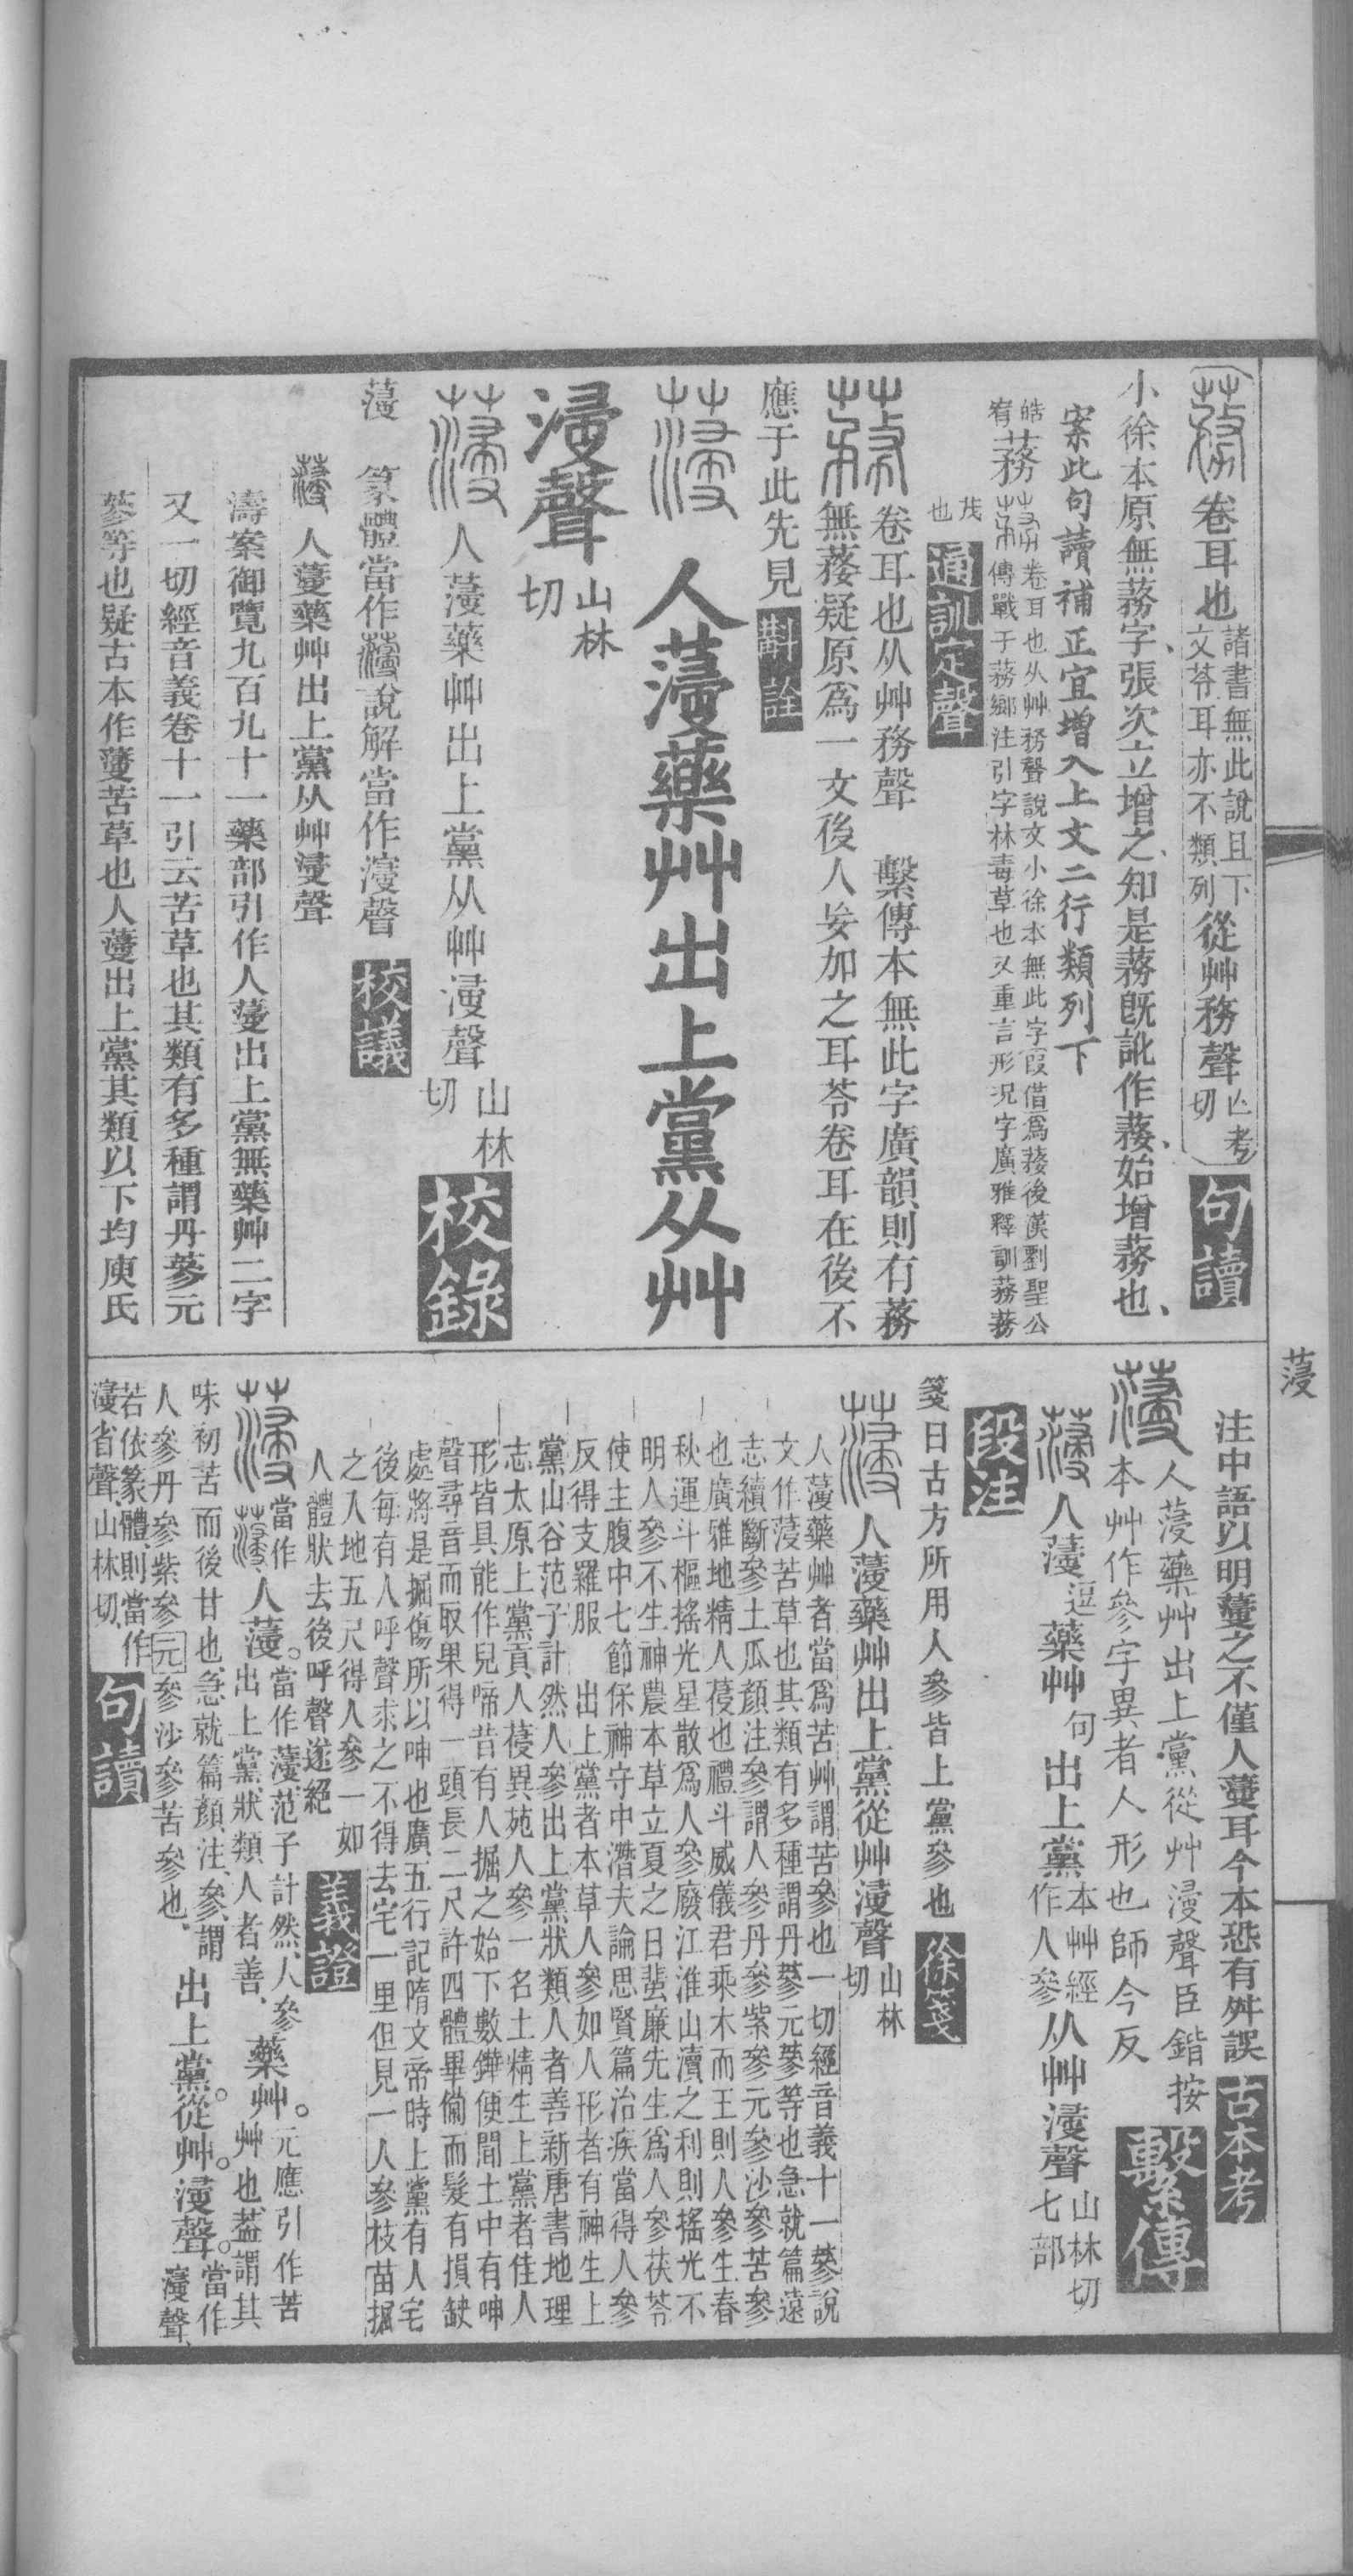 卷耳也諸書無此說且下文苓耳亦不類列從艸務聲亡考切句讀
小徐本原無蓩字張次立增之知是蓩旣訛作蓩始增蓩也
案此句讀補正宜增入上文二行類列下
皓宥蓩卷耳也从艸務聲說文小徐本無此字叚借爲後漢劉聖公傳戰于蓩鄉注引字林毒草也又重言形況字廣雅釋訓蓩蓩茂也通訓定聲
卷耳也从艸務聲 繫傳本無此字廣韻則有蓩
無蓩疑原爲一文後人妄加之耳苓卷耳在後不
應于此先見斠詮
人薓藥艸出上黨从艸
浸聲山林切
人薓藥艸出上黨从艸浸聲山林切校錄
薓 篆體當作說解當作濅聲校議
人薓藥艸出上黨从艸浸聲
濤案御覽九百九十一藥部引作人薓出上黨無藥艸二字
又一切經音義卷十一引云苦草也其類有多種謂丹蔘元
蔘等也疑古本作薓苦草也人薓出上黨其類以下均庾氏
薓
注中語以明薓之不僅人薓耳今本恐有舛誤古本考
人薓藥艸出上黨從艸浸聲臣鍇按
本艸作參字異者人形也師今反繫傳
人薓逗藥艸句出上黨本艸經作人參从艸浸聲山林切七部
段注
箋曰古方所用人參皆上黨參也徐箋
人薓藥艸出上黨從艸浸聲山林切
人薓藥艸者當爲苦艸謂苦參也一切經音義十一蔘說
文作薓苦草也其類有多種謂丹蔘元蔘等也急就篇遠
志續斷參土瓜顏注參謂人參丹參紫參元參沙參苦參
也廣雅地精人葠也禮斗威儀君乘木而王則人參生春
秋運斗樞搖光星散爲人參廢江淮山瀆之利則搖光不
明人參不生神農本草立夏之日蜚廉先生爲人參茯苓
使主腹中七節保神守中潛夫論思賢篇治疾當得人參
反得支羅服 出上黨者本草人參如人形者有神生上
黨山谷范子計然人參出上黨狀類人者善新唐書地理
志太原上黨貢人葠異苑人參一名土精生上黨者佳人
形皆具能作兒啼昔有人掘之始下數鏵便聞土中有呻
聲尋音而取果得一頭長二尺許四體畢備而髮有損缺
處將是掘傷所以呻也廣五行記隋文帝時上黨有人宅
後每有人呼聲求之不得去宅一里但見一人參枝苗掘
之入地五尺得人參一如
人體狀去後呼聲遂絕義證
當作人薓當作薓范子計然人參出上黨狀類人者善藥艸元應引作苦艸也蓋謂其
味初苦而後甘也急就篇顏注參謂
人參丹參紫參元參沙參苦參也出上黨從艸浸聲當作濅聲
若依篆體則當作
濅省聲山林切句讀